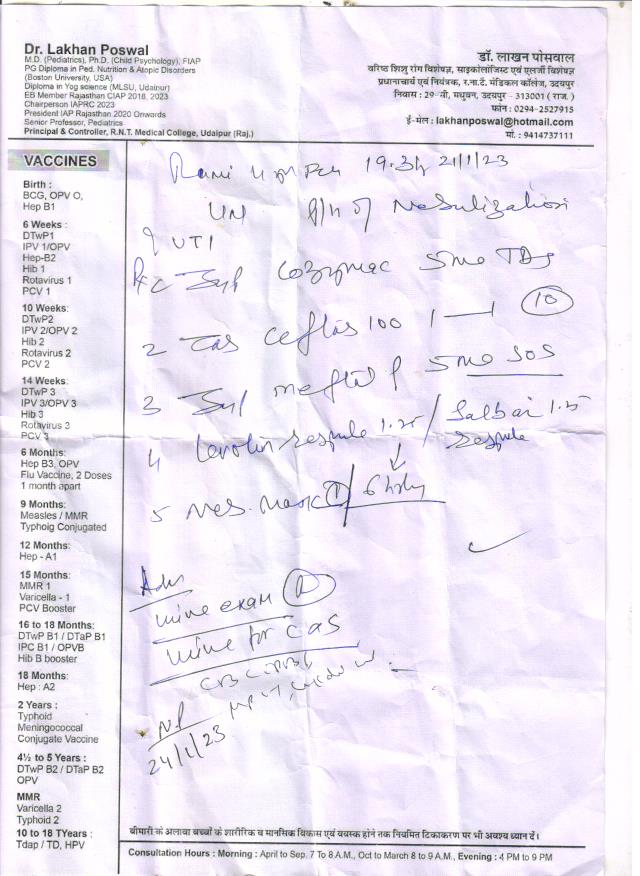 Dr. Lakhan Poswal
M.D. (Pediatrics), Ph.D. (Child Psychology), FIAP
PG Diploma in Ped. Nutrition & Atopic Disorders
(Boston University, USA)
Diploma in Yog science (MLSU, Udainur)
EB Member Rajasthan CIAP 2018, 2023
Chairperson IAPRC 2023
President IAP Rajasthan 2020 Onwards
Senior Professor, Pediatrics
Principal & Controller, R.N.T. Medical College, Udaipur (Raj.)
डॉ. लाखन पोसवाल
वरिष्ठ शिशु रोग विशेषज्ञ, साइकोलॉजिस्ट एवं एलर्जी विशेषज्ञ
प्रधानाचार्य एवं नियंत्रक, र.ना.टै. मेडिकल कॉलेज, उदयपुर
निवास : 29-बी, मधुवन, उदयपुर - 313001 ( राज. )
फोन : 0294-2527915
ई-मेल : lakhanposwal@hotmail.com
मो. : 9414737111
VACCINES
Birth :
BCG, OPV O,
Hep B1
6 Weeks :
DTwP1
IPV 1/OPV
Hep-B2
Hib 1
Rotavirus 1
PCV 1
10 Weeks:
DTwP2
IPV 2/OPV 2
Hib 2
Rotavirus 2
PCV 2
14 Weeks:
DTwP 3
IPV 3/OPV 3
Hib 3
Rotavirus 3
PCV 3
6 Months:
Hep B3, OPV
Flu Vaccine, 2 Doses
1 month apart
9 Months:
Measles / MMR
Typhoig Conjugated
12 Months:
Hep - A1
15 Months:
MMR 1
Varicella - 1
PCV Booster
16 to 18 Months:
DTwP B1 / DTaP B1
IPC B1 / OPVB
Hib B booster
18 Months:
Hep : A2
2 Years :
Typhoid
Meningococcal
Conjugate Vaccine
4½ to 5 Years :
DTwP B2 / DTaP B2
OPV
MMR
Varicella 2
Typhoid 2
10 to 18 TYears :
Tdap / TD, HPV
19.3 21/1/23
of Nebulization
? UTI
Syp 5ml TDS
2 Tab 100 1 — 1 (10)
3 Syp meftal P 5ml SOS
4 Levolin respule 1.25 / Salbair 1.25
respule
5 Neb. Mask (1) / 6 hrly
Adv
urine exam
urine for C & S
CBC
24/1/23
बीमारी के अलावा बच्चों के शारीरिक व मानसिक विकास एवं वयस्क होने तक नियमित टिकाकरण पर भी अवश्य ध्यान दें।
Consultation Hours : Morning : April to Sep. 7 To 8 A.M., Oct to March 8 to 9 A.M., Evening : 4 PM to 9 PM